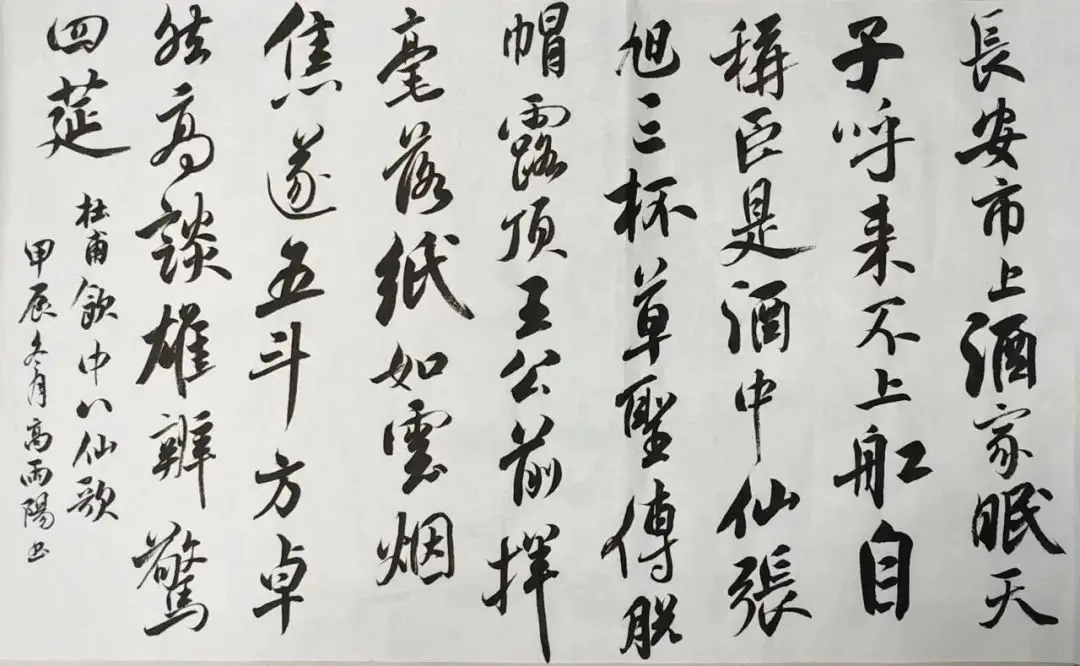 長安市上酒家眠天
子呼来不上船自
稱臣是酒中仙張
旭三杯草聖傳脱
帽露頂王公前揮
毫落紙如雲烟
焦遂五斗方卓
然高談雄辨驚
四莚
杜甫飲中八仙歌
甲辰冬月高雨陽书